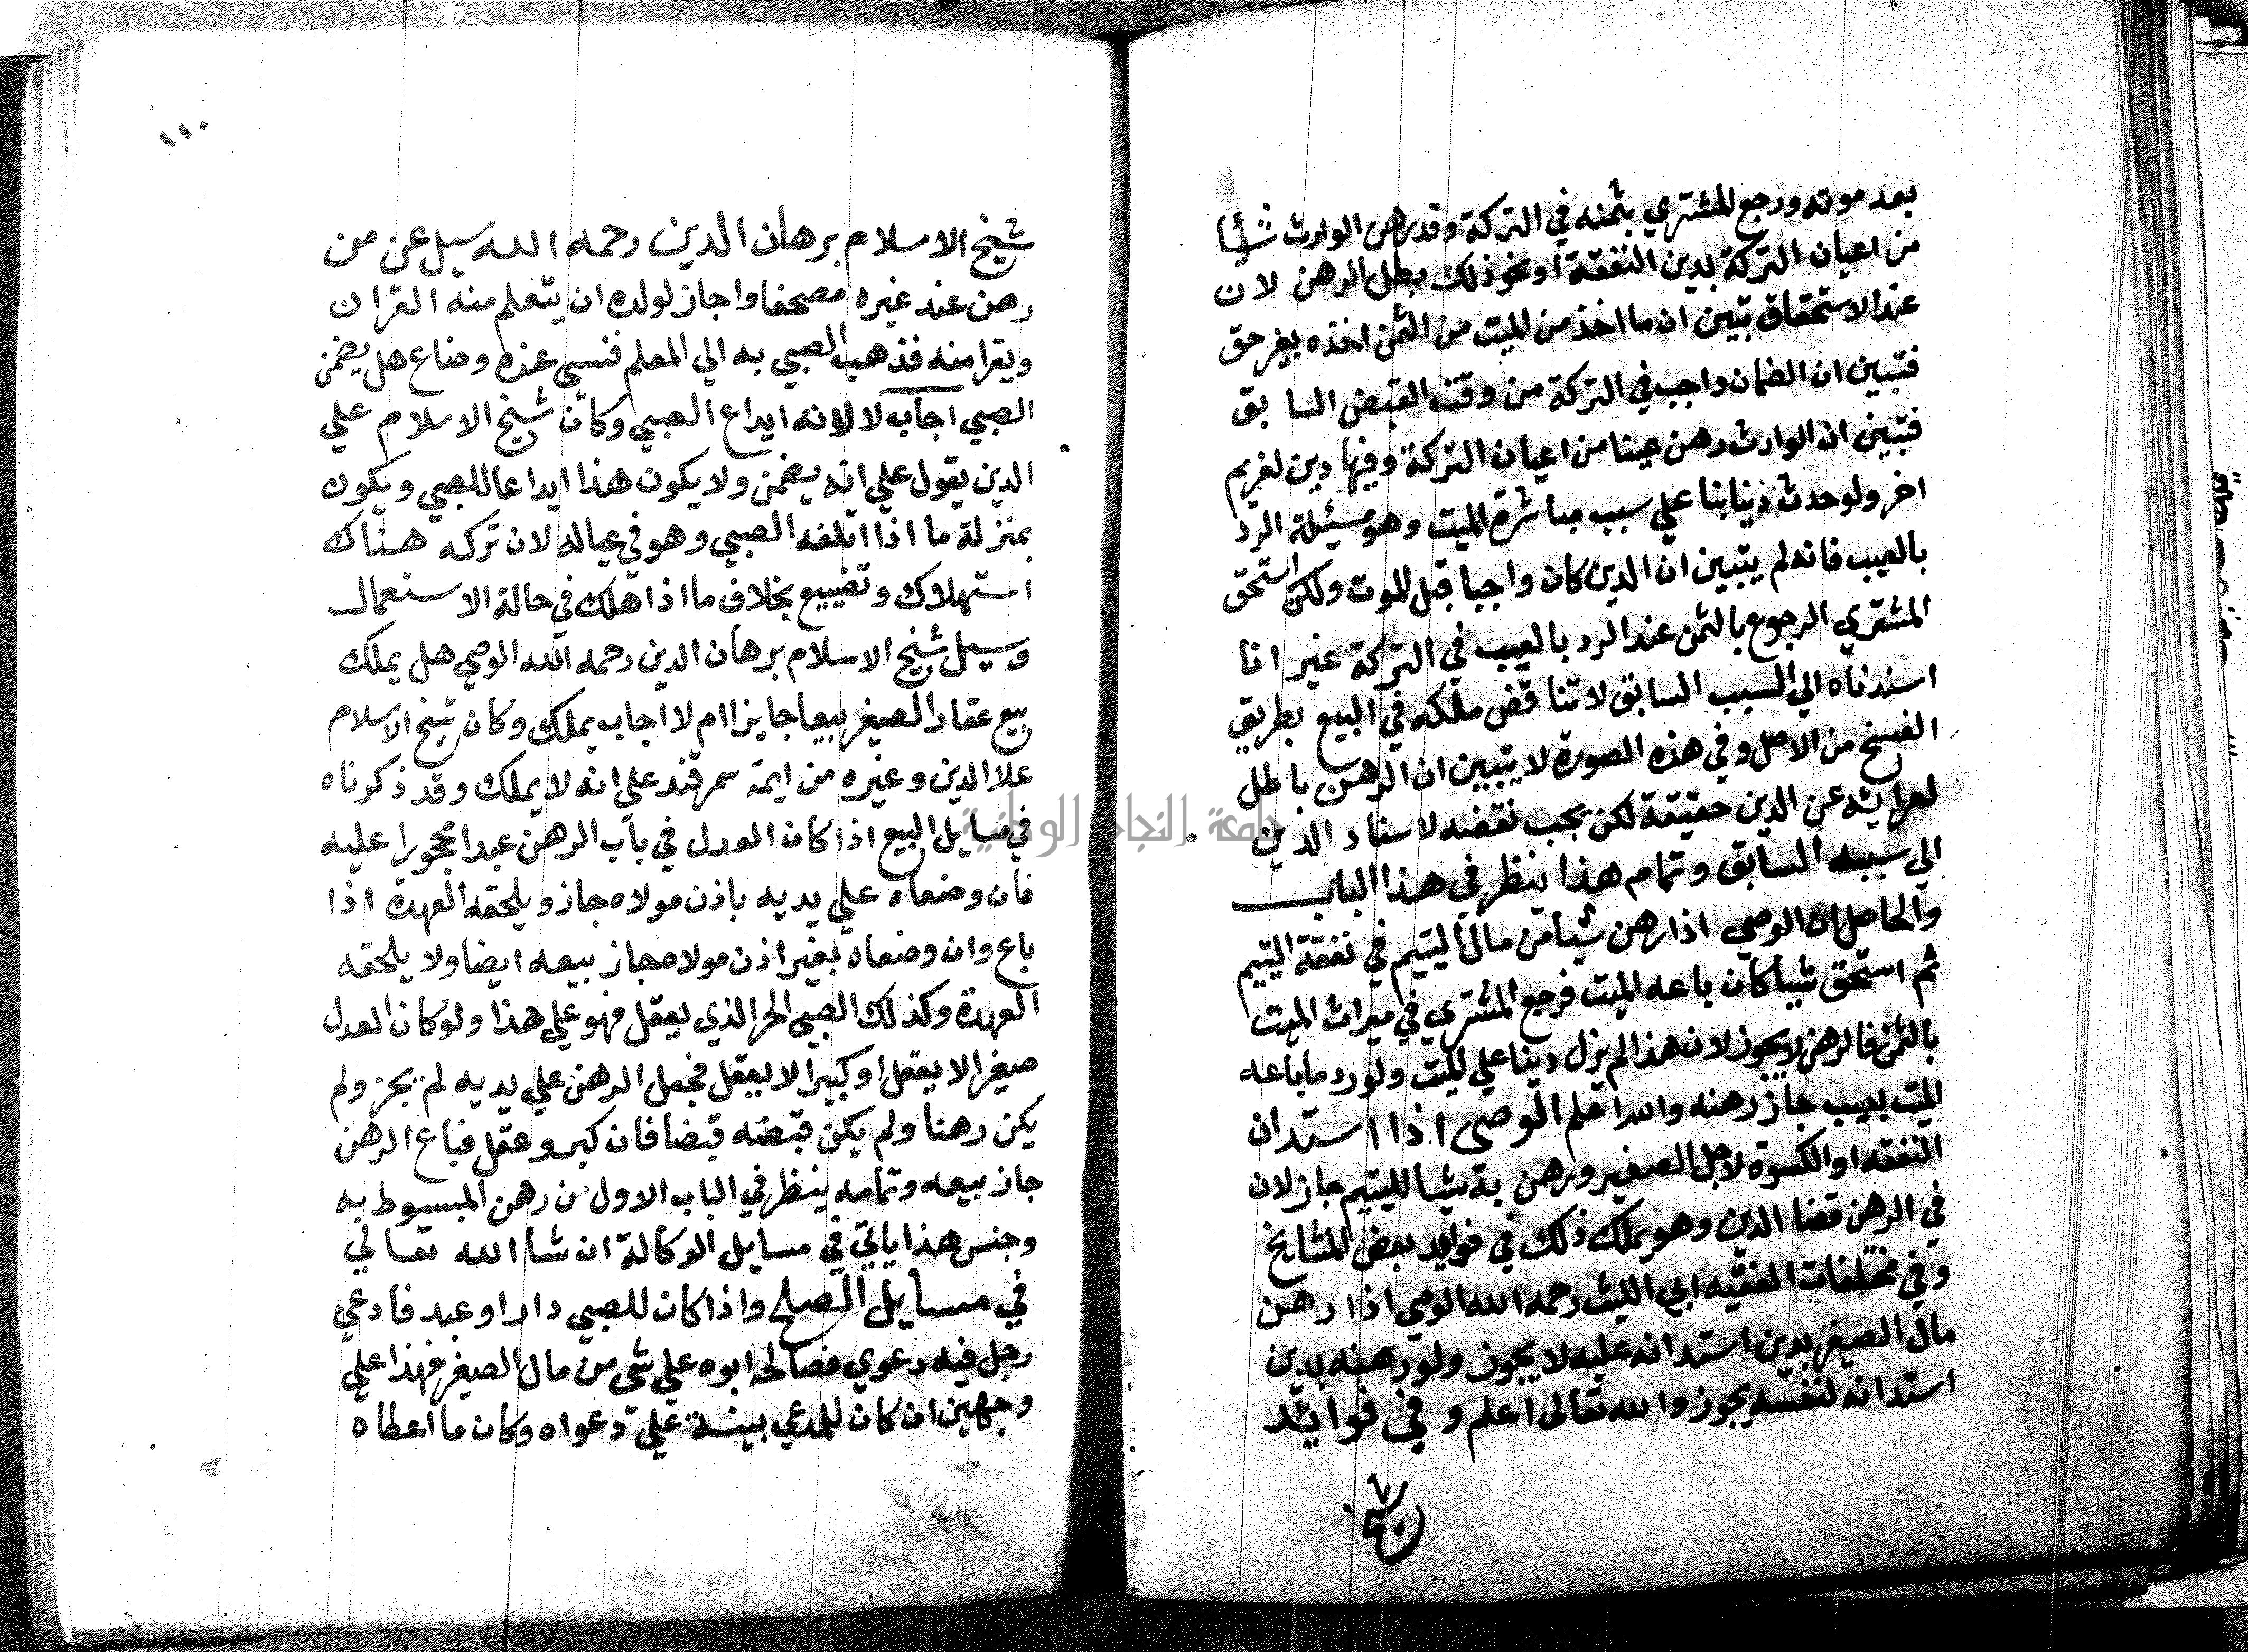 بعد موته ورجع المشتري بثمنه في التركة وقد رهن الوارث شيأ
من اعيان التركة بدين النفقة او نحو ذلك بطل الرهن لان
عند الاستحقاق تبين ان ما اخذ من الميت من الثمن اخذه بغير حق
فتبين ان الضمان واجب في التركة من وقت القبض السابق
فتبين ان الوارث رهن عينا من اعيان التركة وفيها دين لغريم
اخر ولو حدث دينا بنا علي سبب مباشرة الميت وهو مسئلة الرد
بالعيب فانه لم يتبين ان الدين كان واجبا قبل الموت ولكن استحق
المشتري الرجوع بالثمن عند الرد بالعيب في التركة غير انا
اسندناه الي السبب السابق لاتنا قض ملكه في البيع بطريق
الفسخ من الاصل وفي هذه الصورة لا يتبين ان الرهن باطل
لعرايته عن الدين حقيقة لكن يجب نقضه لاسناد الدين
الي سببه السابق وتمام هذا ينظر في هذا الباب
والحاصل ان الوصي اذا رهن شيأ من مال اليتيم في نفقة اليتيم
ثم استحق شيأ كان باعه الميت فرجع المشتري في ميراث الميت
بالثمن فالرهن لا يجوز لان هذا لم يزل دينا علي الميت ولو رد ما باعه
الميت بعيب جاز رهنه والله اعلم الوصي اذا استدان
النفقه او الكسوة لاجل الصغير ورهن به شيا لليتيم جاز لان
في الرهن قضا الدين وهو يملك ذلك في فوايد بعض المشايخ
وفي مختلفات الفقيه ابي الليث رحمه الله الوصي اذا رهن
مال الصغير بدين استدانه عليه لا يجوز ولو رهنه بدين
استدانه لنفسه يجوز والله تعالى اعلم وفي فوائد
شيخ
١١٠
شيخ الاسلام برهان الدين رحمه الله سيل عن من
رهن عند غيره مصحفا واجاز لولده ان يتعلم منه القران
ويقرا منه فذهب الصبي به الي المعلم فنسي عنده وضاع هل يضمن
الصبي اجاب لا لانه ايداع الصبي وكان شيخ الاسلام علي
الدين يقول علي انه يضمن ولا يكون هذا ايداعا للصبي ويكون
بمنزلة ما اذا اتلفه الصبي وهو في عياله لان تركه هناك
استهلاك وتضييع بخلاف ما اذا هلك في حالة الاستعمال
وسيل شيخ الاسلام برهان الدين رحمه الله الوصي هل يملك
بيع عقار الصغير بيعا جايزا ام لا اجاب يملك وكان شيخ الاسلام
علا الدين وغيره من ايمة سمرقند علي انه لا يملك وقد ذكرناه
في مسايل البيع اذا كان العدل في باب الرهن عبدا محجورا عليه
فان وضعاه علي يديه باذن مولاه جاز ويلحقه العهدة اذا
باع وان وضعاه بغير اذن مولاه جاز بيعه ايضا ولا يلحقه
العهدة وكذلك الصبي الحر الذي يعقل فهو علي هذا ولو كان العدل
صغيرا لا يعقل او كبيرا لا يعقل فجعل الرهن علي يديه لم يجز ولم
يكن رهنا ولم يكن قبضه قبضا فان كبر وعقل فباع الرهن
جاز بيعه وتمامه ينظر في الباب الاول من رهن المبسوط به
وجنس هذا ياتي في مسايل الوكالة ان شا الله تعالي
في مسايل الصلح واذا كان للصبي دار او عبد فادعي
رجل فيه دعوي فصالحه ابوه علي شئ من مال الصغير فهذا علي
وجهين ان كان للمدعي بينة علي دعواه وكان ما اعطاه
جامعة النجاح الوطنية